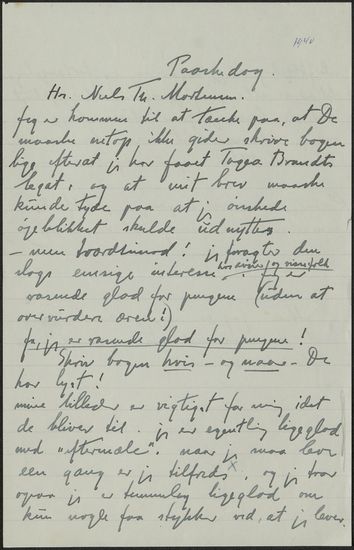 1940
Paaskedag.
Hr. Niels Th. Mortensen.
Jeg er kommen til at tænke paa, at De
maaske netop ikke gider skrive bogen
efterat jeg har faaet Tagea Brandts
legat; og at mit brev maaske
kunde tyde paa at jeg ønskede
øjeblikket skulde udnyttes
– men Tordensnod! jeg foragter den
slags emsige interesse
hos aviser og visse folk
jeg er
rasende glad for pengene (uden at
overvurdere æren!)
Ja, jeg er rasende glad for pengene!
Skriv bogen hvis – og naar – De
har lyst!
mine billeder er vigtigst for mig idet
de bliver til. jeg er egentlig ligeglad
med "eftermæle". naar jeg maa leve
een gang er jeg tilfreds x, og jeg tror
ogsaa jeg er temmelig ligeglad om
kun nogle faa stykker ved, at jeg lever.